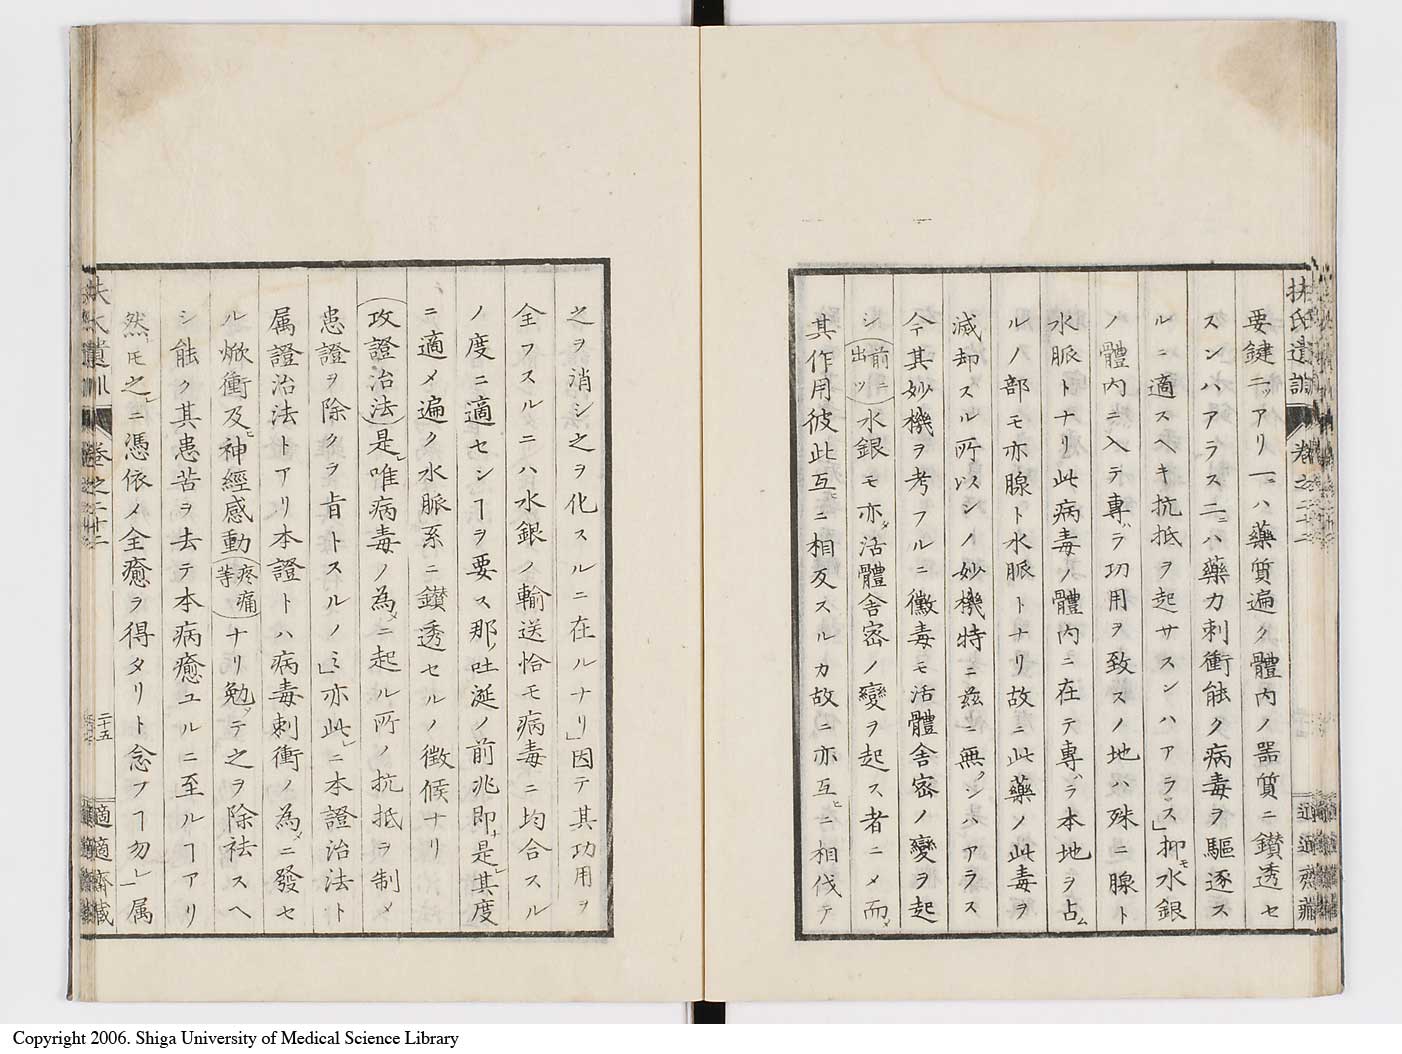 扶氏遺訓 卷之二十二
要鍵二ッアリ一ハ藥質遍ク體内ノ器質ニ鑚透セ
スンハアラス二ハ藥力刺衝能ク病毒ヲ驅逐ス
ルニ適スヘキ抗抵ヲ起サスンハアラス」抑モ水銀
ノ體内ニ入テ專ハラ功用ヲ致スノ地ハ殊ニ腺ト
水脈トナリ此病毒ノ體内ニ在テ專ハラ本地ヲ占ム
ルノ部モ亦腺ト水脈トナリ故ニ此藥ノ此毒ヲ
減却スル所以ンノ妙機特ニ茲ニ無クンハアラス
今其妙機ヲ考フルニ黴毒モ活體舎密ノ變ヲ起
シ(前ニ出ツ)水銀モ亦タ活體舎密ノ變ヲ起ス者ニメ而メ
其作用彼此互ニ相反スルカ故ニ亦互ヒニ相伐テ
之ヲ消シ之ヲ化スルニ在ルナリ」因テ其功用ヲ
全フスルニハ水銀ノ輸送恰モ病毒ニ均合スル
ノ度ニ適センヿヲ要ス那ノ吐涎ノ前兆即チ是レ其度
ニ適メ遍ク水脈系ニ鑚透セルノ徴候ナリ
(攻證治法)是レ唯病毒ノ為メニ起ル所ノ抗抵ヲ制メ
患證ヲ除クヲ旨トスルノミ」亦此レニ本證治法ト
属證治法トアリ本證トハ病毒刺衝ノ為メニ發セ
ル焮衝及ヒ神經感動(疼痛等)ナリ勉メテ之ヲ除袪スヘ
シ能ク其患苦ヲ去テ本病癒ユルニ至ルヿアリ
然レモ之レニ憑依メ全癒ヲ得タリト念フヿ勿レ」属
扶氏遺訓 卷之二十二 二十五 適適齋藏
Copyright 2006. Shiga University of Medical Science Library